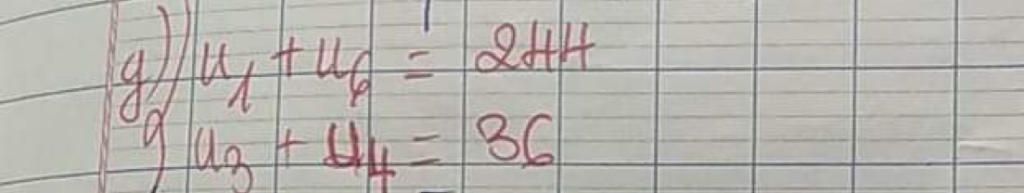 g) u₁ + u₆ = 244
u₃ + u₄ = 36